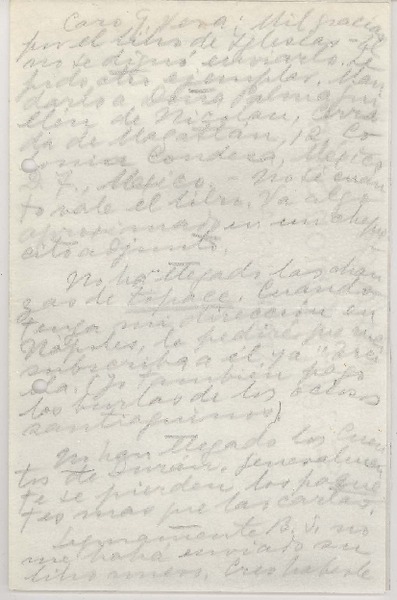 Caro G. Vera: Mil gracias
por el libro de Iglesias - Él
no se dignó enviarlo. Le
pido otro ejemplar. Man
darlo a Doña Palma Gui
llén de Nicolau, Cerra
da de Mazatlán, 12, Co
lonia Condesa, México
D. F., México. - No sé cuán
to vale el libro. Va algo
aproximado en un chequе
cito adjunto.
No ha llegado
de Espace. Cuando
tenga mi dirección en
Nápoles, le pediré que me
subscriba a él ya
(Yo también pago
las burlas de los ociosos
santiaguinos)
No han llegado los Cuen
tos de Durán. Generalmen
te se pierden los paque
tes más que las cartas.
B. S. no
me había enviado su
libro nuevo. Creo haberle